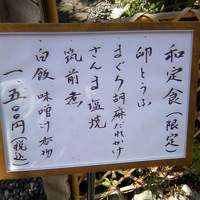 和定食(限定)
卵とうふ
まぐろ胡麻だれかけ
さんま塩焼
筑前煮
白飯 味噌汁 香物
一、五〇〇円(税込)